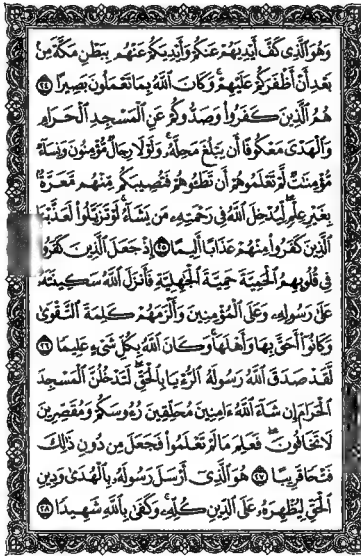 وَهُوَ الَّذِي كَفَّ أَيْدِيَهُمْ عَنكُمْ وَأَيْدِيَكُمْ عَنْهُم بِبَطْنِ مَكَّةَ مِنۢ
بَعْدِ أَنْ أَظْفَرَكُمْ عَلَيْهِمْ وَكَانَ اللَّهُ بِمَا تَعْمَلُونَ بَصِيرًا ٢٤
هُمُ الَّذِينَ كَفَرُوا وَصَدُّوكُمْ عَنِ الْمَسْجِدِ الْحَرَامِ
وَالْهَدْيَ مَعْكُوفًا أَن يَبْلُغَ مَحِلَّهُ وَلَوْلَا رِجَالٌ مُّؤْمِنُونَ وَنِسَاءٌ
مُّؤْمِنَاتٌ لَّمْ تَعْلَمُوهُمْ أَن تَطَـُٔوهُمْ فَتُصِيبَكُم مِّنْهُم مَّعَرَّةٌ
بِغَيْرِ عِلْمٍ لِّيُدْخِلَ اللَّهُ فِي رَحْمَتِهِ مَن يَشَاءُ لَوْ تَزَيَّلُوا لَعَذَّبْنَا
الَّذِينَ كَفَرُوا مِنْهُمْ عَذَابًا أَلِيمًا ٢٥ إِذْ جَعَلَ الَّذِينَ كَفَرُوا
فِي قُلُوبِهِمُ الْحَمِيَّةَ حَمِيَّةَ الْجَاهِلِيَّةِ فَأَنزَلَ اللَّهُ سَكِينَتَهُ
عَلَىٰ رَسُولِهِ وَعَلَى الْمُؤْمِنِينَ وَأَلْزَمَهُمْ كَلِمَةَ التَّقْوَىٰ
وَكَانُوا أَحَقَّ بِهَا وَأَهْلَهَا وَكَانَ اللَّهُ بِكُلِّ شَيْءٍ عَلِيمًا ٢٦
لَّقَدْ صَدَقَ اللَّهُ رَسُولَهُ الرُّءْيَا بِالْحَقِّ لَتَدْخُلُنَّ الْمَسْجِدَ
الْحَرَامَ إِن شَاءَ اللَّهُ ءَامِنِينَ مُحَلِّقِينَ رُءُوسَكُمْ وَمُقَصِّرِينَ
لَا تَخَافُونَ فَعَلِمَ مَا لَمْ تَعْلَمُوا فَجَعَلَ مِن دُونِ ذَٰلِكَ
فَتْحًا قَرِيبًا ٢٧ هُوَ الَّذِي أَرْسَلَ رَسُولَهُ بِالْهُدَىٰ وَدِينِ
الْحَقِّ لِيُظْهِرَهُ عَلَى الدِّينِ كُلِّهِ وَكَفَىٰ بِاللَّهِ شَهِيدًا ٢٨